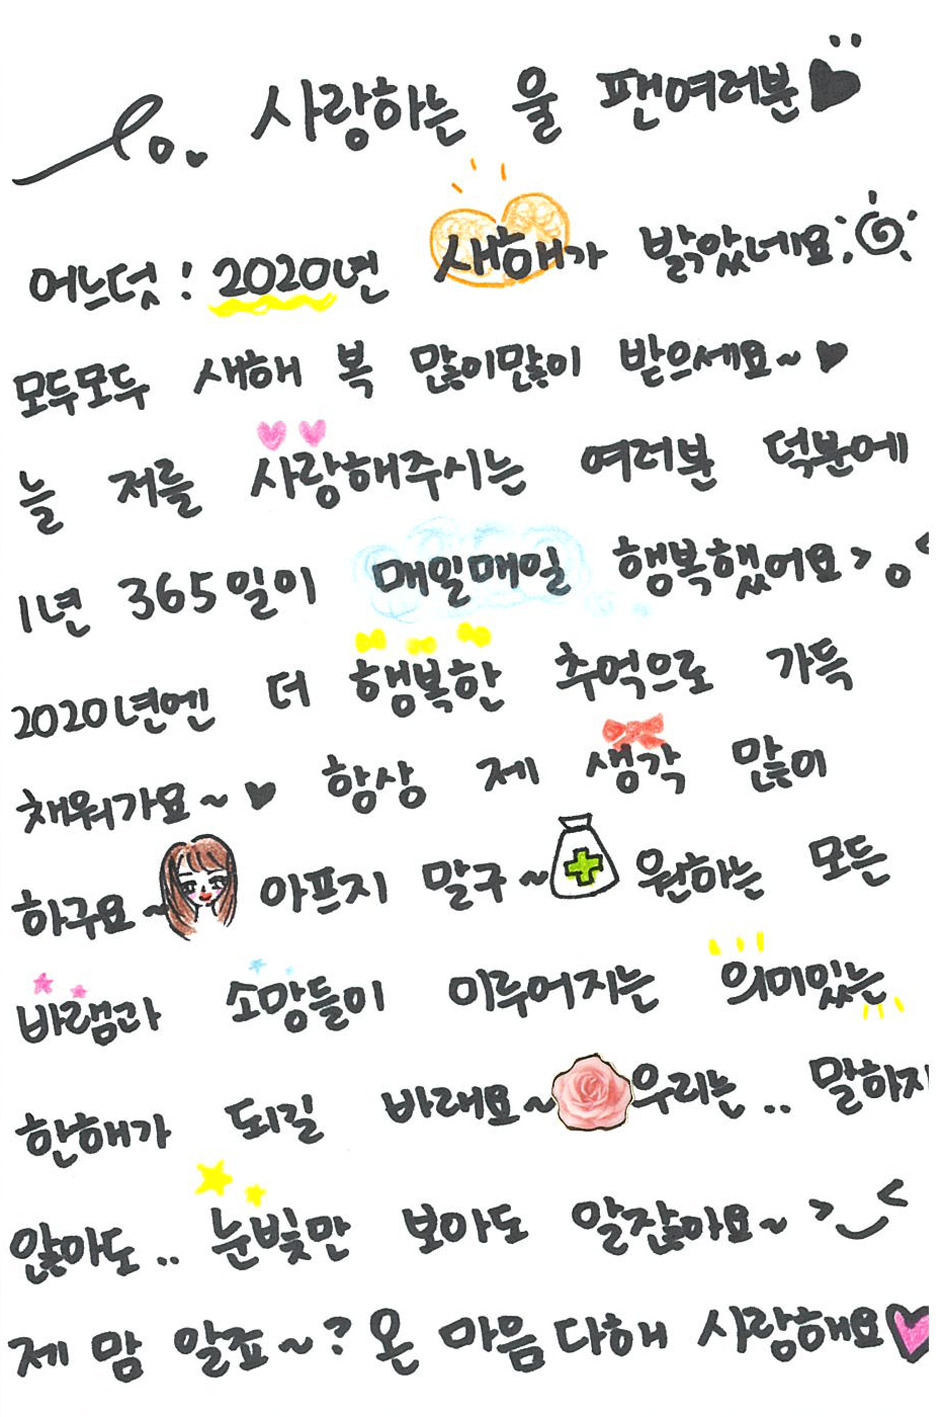 To. 사랑하는 울 팬여러분♥
어느덧! 2020년 새해가 밝았네요
모두모두 새해 복 많이많이 받으세요~♥
늘 저를 사랑해주시는 여러분 덕분에
1년 365일이 매일매일 행복했어요>o<
2020년엔 더 행복한 추억으로 가득
채워가요~♥ 항상 제 생각 많이
하구요~ 아프지 말구~ 원하는 모든
바램과 소망들이 이루어지는 의미있는
한해가 되길 바래요~ 우리는.. 말하지
않아도.. 눈빛만 보아도 알잖아요~ >_<
제 맘 알죠~? 온 마음 다해 사랑해요♥